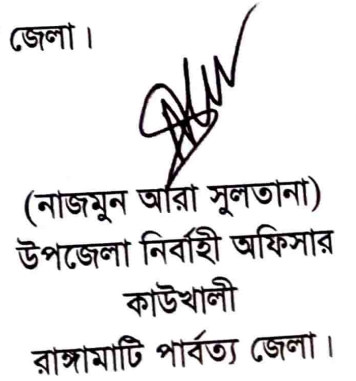 জেলা।
(নাজমুন আরা সুলতানা)
উপজেলা নির্বাহী অফিসার
কাউখালী
রাঙ্গামাটি পার্বত্য জেলা।